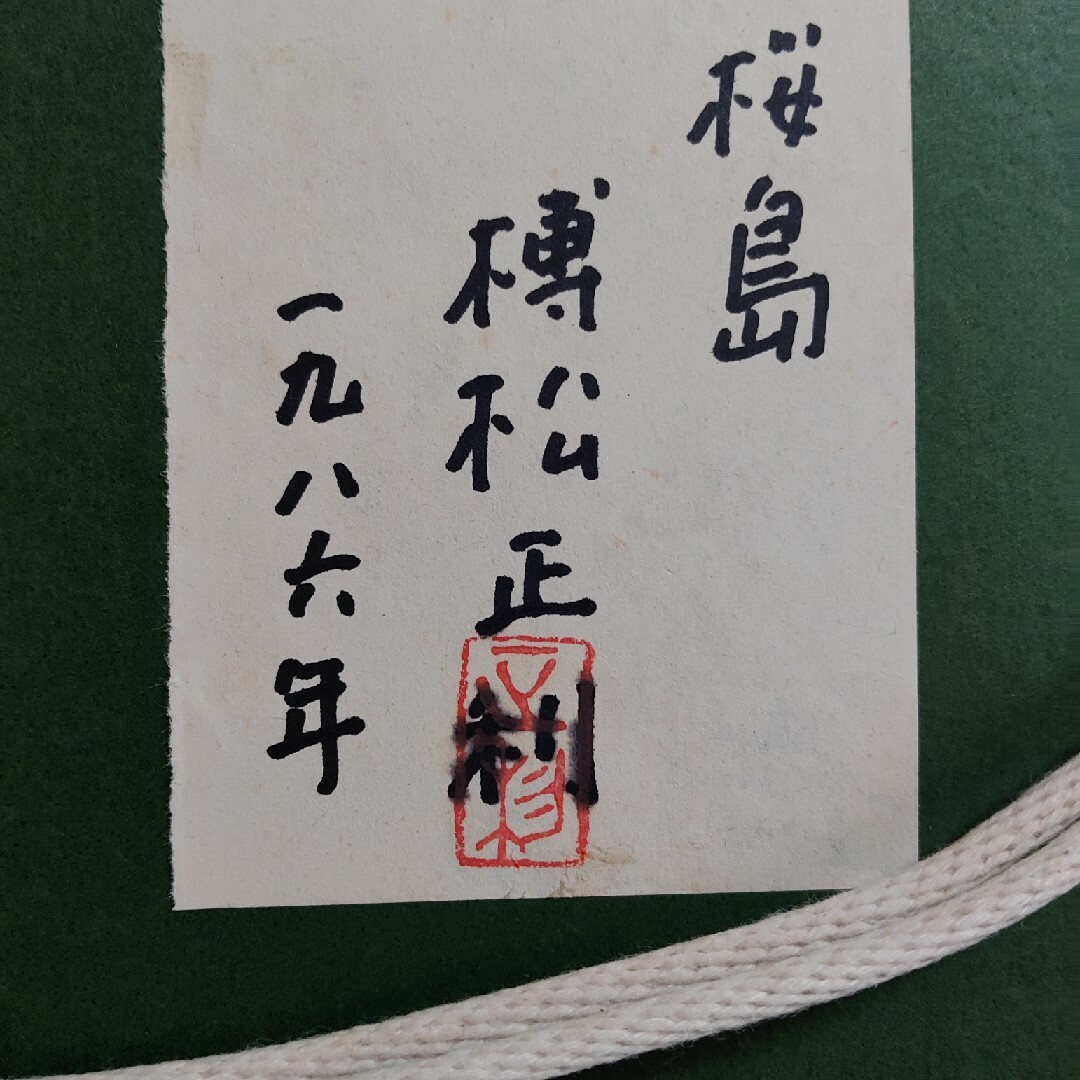 桜島
榑松正利
一九八六年